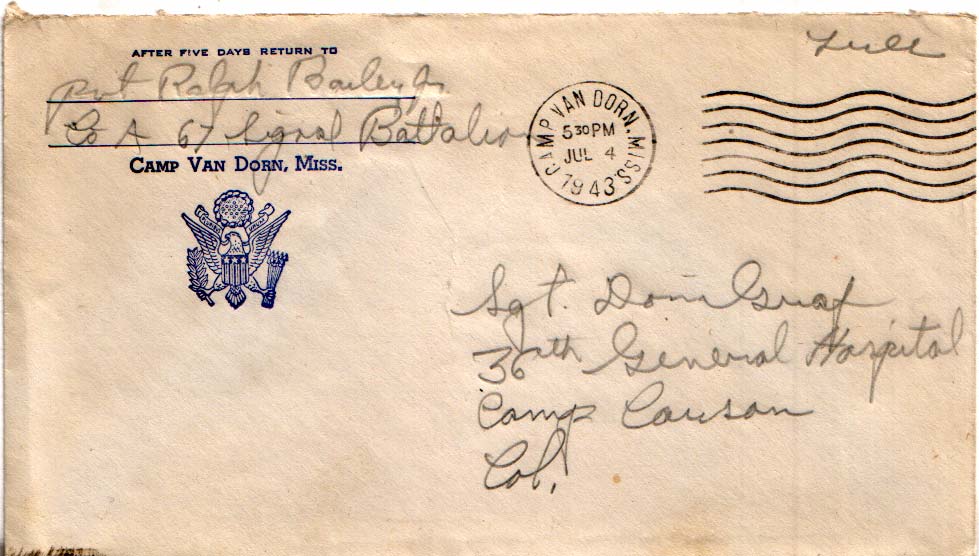 AFTER FIVE DAYS RETURN TO
Pvt Ralph Bailey Jr.
Co A 67 Signal Battalion
CAMP VAN DORN, MISS.
Free
CAMP VAN DORN, MISS.
5 30 PM
JUL 4
1943
Sgt. Don Graf
36th General Hospital
Camp Carson
Col.